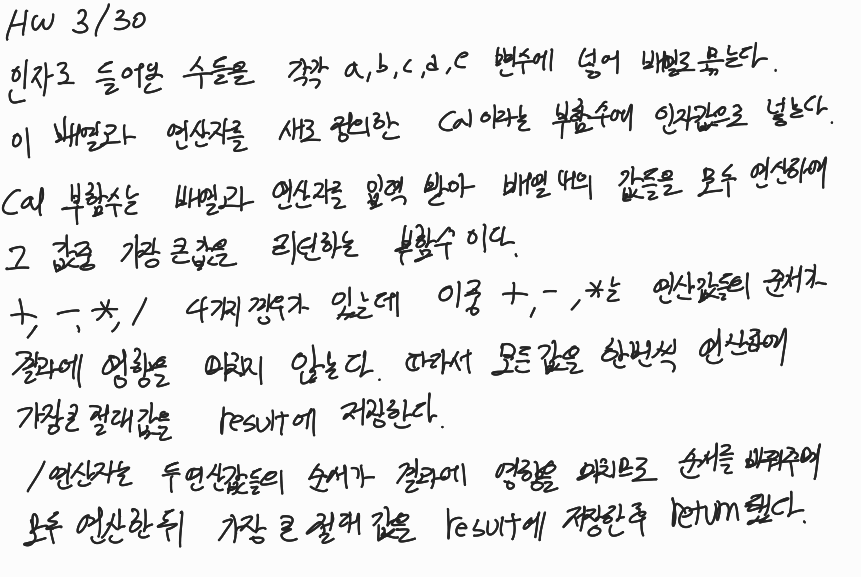 HW 3/30
인자로 들어온 수들을 각각 a,b,c,d,e 변수에 넣어 배열로 묶는다.
이 배열과 연산자를 새로 정의한 Cal 이라는 부함수에 인자값으로 넣는다.
Cal 부함수는 배열과 연산자를 입력 받아 배열 내의 값들을 모두 연산하여
그 값중 가장 큰값을 리턴하는 부함수 이다.
+, -, *, / 4가지 경우가 있는데 이중 +, -, *는 연산값들의 순서가
결과에 영향을 미치지 않는다. 따라서 모든 값을 한번씩 연산하여
가장 큰 절대값을 result에 저장한다.
/연산자는 두연산값들의 순서가 결과에 영향을 미치므로 순서를 바꿔주며
모두 연산한뒤 가장 큰 절대 값을 result에 저장한후 return 했다.